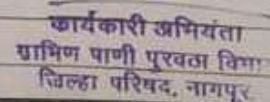 कार्यकारी अभियंता
ग्रामिण पाणी पुरवठा विभा
जिल्हा परिषद, नागपूर